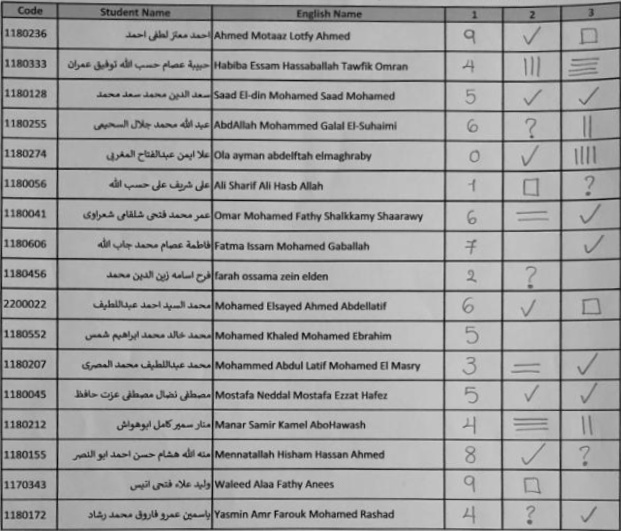 Code Student Name English Name 1 2 3
1180236 احمد معتز لطفى احمد Ahmed Motaaz Lotfy Ahmed 9 ✓ □
1180333 حبيبة عصام حسب الله توفيق عمران Habiba Essam Hassaballah Tawfik Omran 4 ||| ☰
1180128 سعد الدين محمد سعد محمد Saad El-din Mohamed Saad Mohamed 5 ✓ ✓
1180255 عبد الله محمد جلال السحيمى AbdAllah Mohammed Galal El-Suhaimi 6 ? ||
1180274 علا ايمن عبدالفتاح المغربى Ola ayman abdelftah elmaghraby 0 ✓ ||||
1180056 على شريف على حسب الله Ali Sharif Ali Hasb Allah 1 □ ?
1180041 عمر محمد فتحى شلقامى شعراوى Omar Mohamed Fathy Shalkkamy Shaarawy 6 = ✓
1180606 فاطمة عصام محمد جاب الله Fatma Issam Mohamed Gaballah 7 ✓
1180456 فرح اسامه زين الدين محمد farah ossama zein elden 2 ?
2200022 محمد السيد احمد عبداللطيف Mohamed Elsayed Ahmed Abdellatif 6 ✓ □
1180552 محمد خالد محمد ابراهيم شمس Mohamed Khaled Mohamed Ebrahim 5
1180207 محمد عبداللطيف محمد المصرى Mohammed Abdul Latif Mohamed El Masry 3 = ✓
1180045 مصطفى نضال مصطفى عزت حافظ Mostafa Neddal Mostafa Ezzat Hafez 5 ✓ ✓
1180212 منار سمير كامل ابوهواش Manar Samir Kamel AboHawash 4 ☰ ||
1180155 منه الله هشام حسن احمد ابو النصر Mennatallah Hisham Hassan Ahmed 8 ✓ ?
1170343 وليد علاء فتحى انيس Waleed Alaa Fathy Anees 9 □
1180172 ياسمين عمرو فاروق محمد رشاد Yasmin Amr Farouk Mohamed Rashad 4 ? ✓